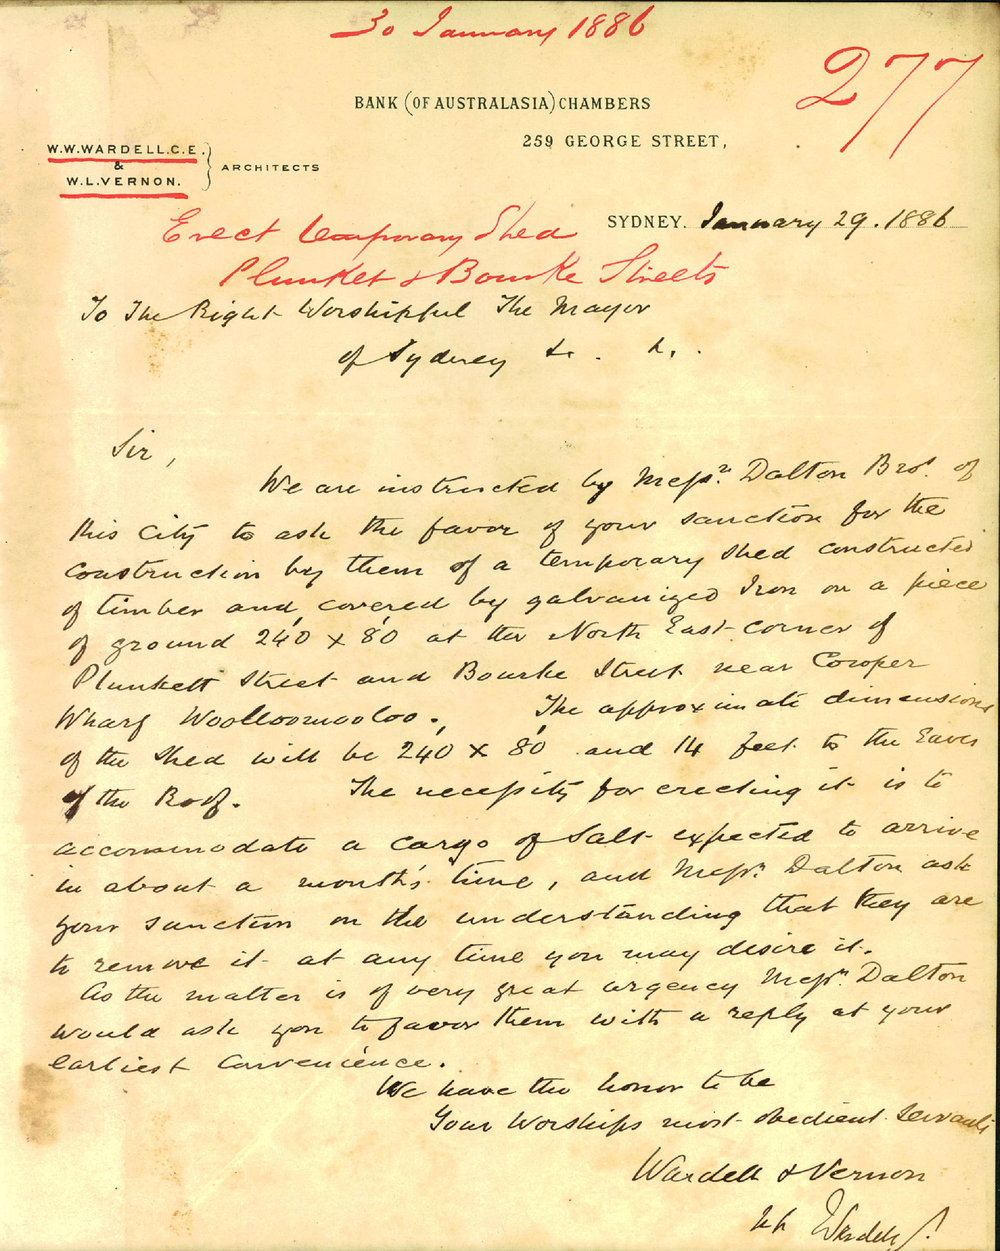 30 January 1886
277
BANK (OF AUSTRALASIA) CHAMBERS
259 GEORGE STREET,
W.W.WARDELL.C.E.
&
W.L.VERNON.
ARCHITECTS
SYDNEY. January 29. 1886
Erect temporary Shed
Plunket & Bourke Streets
To The Right Worshipful The Mayor
of Sydney &c. &c.
Sir,
We are instructed by Messrs. Dalton Bros. of
this City to ask the favor of your sanction for the
construction by them of a temporary shed constructed
of timber and covered by galvanized Iron on a piece
of ground 240' x 80' at the North East corner of
Plunkett Street and Bourke Street near Cowper
Wharf Woolloomooloo. The approximate dimensions
of the shed will be 240' x 80' and 14 feet to the Eaves
of the Roof. The necessity for erecting it is to
accommodate a cargo of Salt expected to arrive
in about a month's time, and Messrs. Dalton ask
your sanction on the understanding that they are
to remove it at any time you may desire it.
As the matter is of very great urgency Messrs. Dalton
would ask you to favor them with a reply at your
earliest convenience.
We have the honor to be
Your Worships most obedient Servants
Wardell & Vernon